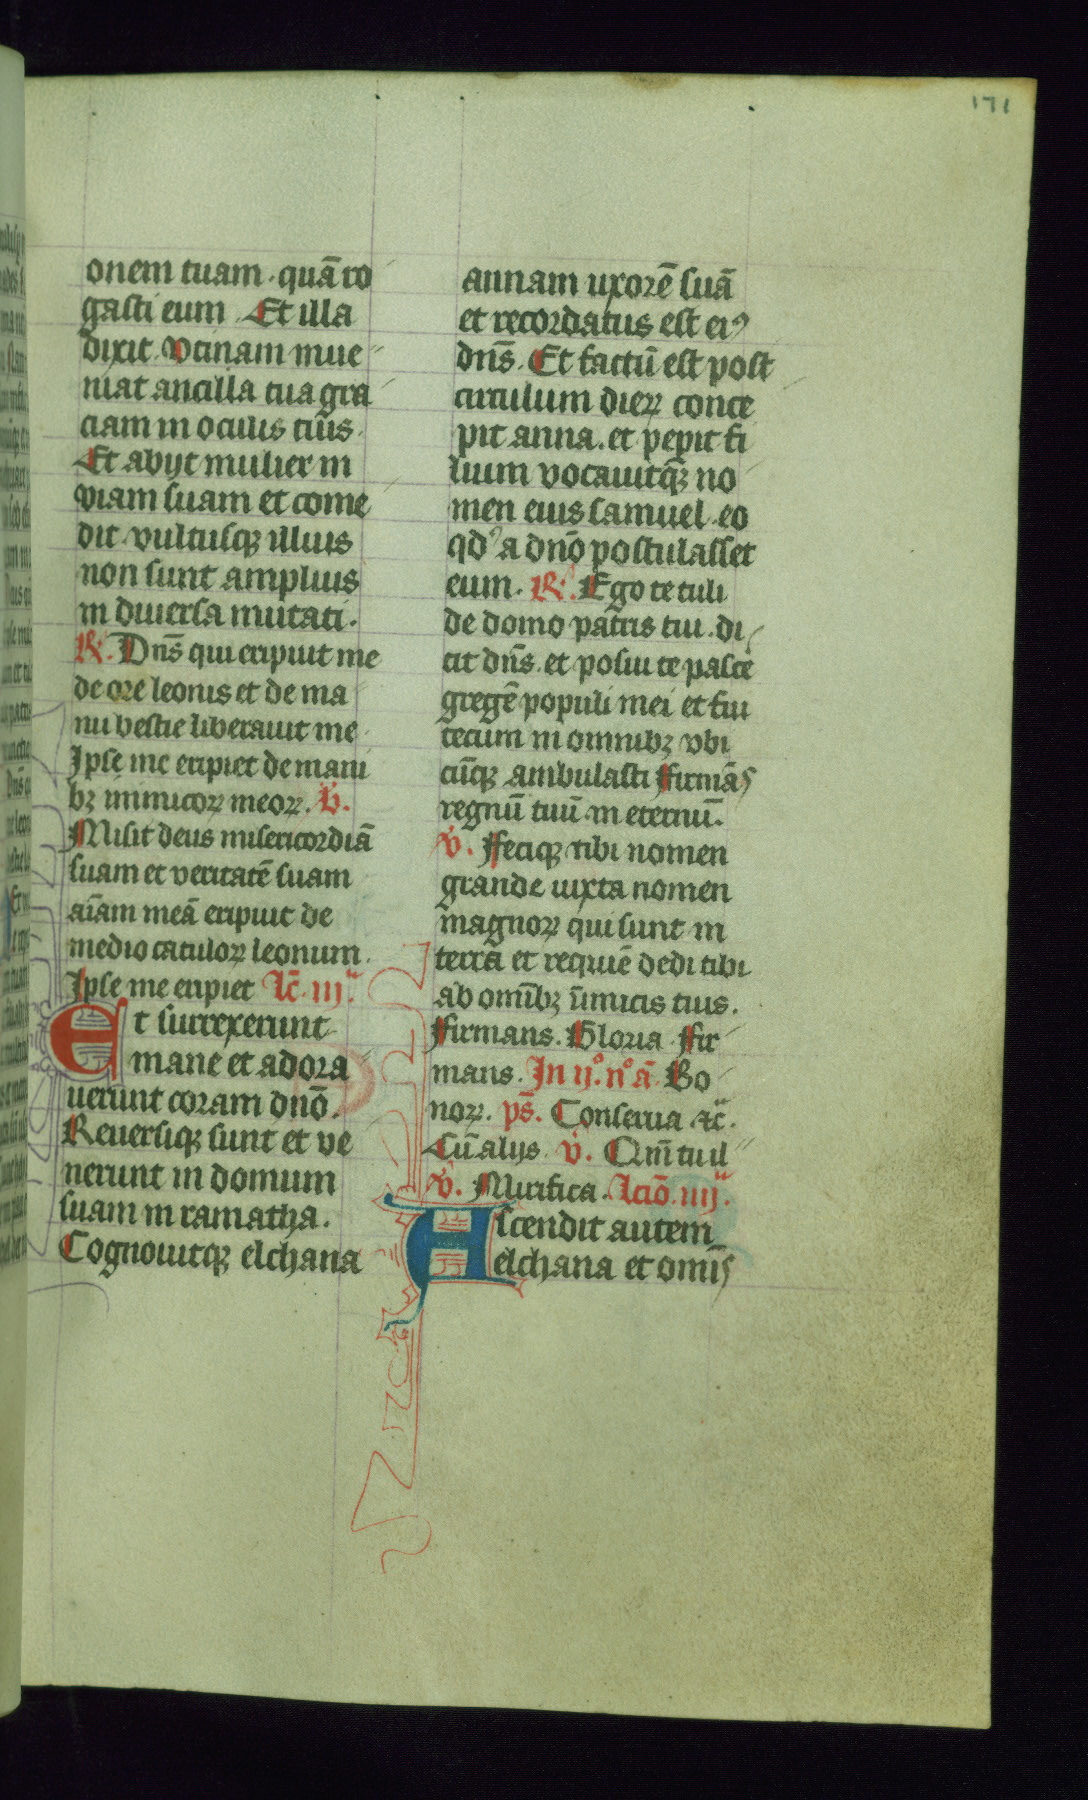 171
onem tuam. quā ro
gasti eum Et illa
dixit. Vtinam inue
niat ancilla tua gra
ciam in oculis tuis.
Et abijt mulier in
viam suam et come
dit. vultusqꝫ illius
non sunt amplius
in diuersa mutati.
R. Dns̄ qui eripuit me
de ore leonis et de ma
nu bestie liberauit me
Ipse me eripiet de mani
bꝫ inimicoꝝ meoꝝ. V.
Misit deus misericordiā
suam et veritatē suam
aīam meā eripuit de
medio catuloꝝ leonum.
Ipse me eripiet Lc̄. iij.
Et surrexerunt
mane et adora
uerunt coram dnō.
Reuersiqꝫ sunt et ve
nerunt in domum
suam in ramatha.
Cognouitqꝫ elchana
annam uxorē suā
et recordatus est eiꝰ
dns̄. Et factū est post
circulum dieꝝ conce
pit anna. et pepit fi
lium vocauitqꝫ no
men eius samuel. eo
qd̓ a dnō postulasset
eum. R. Ego te tuli
de domo patris tui. di
cit dns̄. et posui te pasce
gregē populi mei et fui
tecum in omnibꝫ vbi
cūqꝫ ambulasti ffirmās
regnū tuū in eternū.
V. ffeciqꝫ tibi nomen
grande iuxta nomen
magnoꝝ qui sunt in
terra et requiē dedi tibi
ab omībꝫ inimicis tuis.
ffirmans. Gloria. ffir
mans. In ij°. n° ā. Bo
noꝝ. ps̄. Conserua ⁊c̄.
Cū alijs. V. Qm̄ tu il
V. Mirifica. Lcio. iiij.
Ascendit autem
elchana et omīs